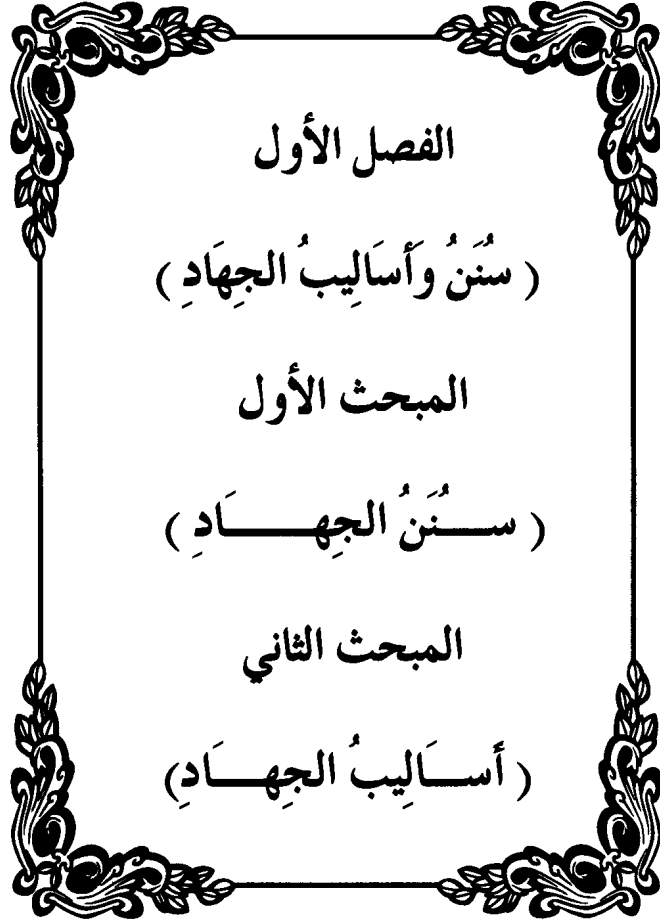 الفصل الأول
( سُنَنُ وَأَسَالِيبُ الجِهَادِ )
المبحث الأول
( ســـنَُنُ الجِهـــــــَادِ )
المبحث الثاني
( أَســـَالِيبُ الجِهــــَادِ)